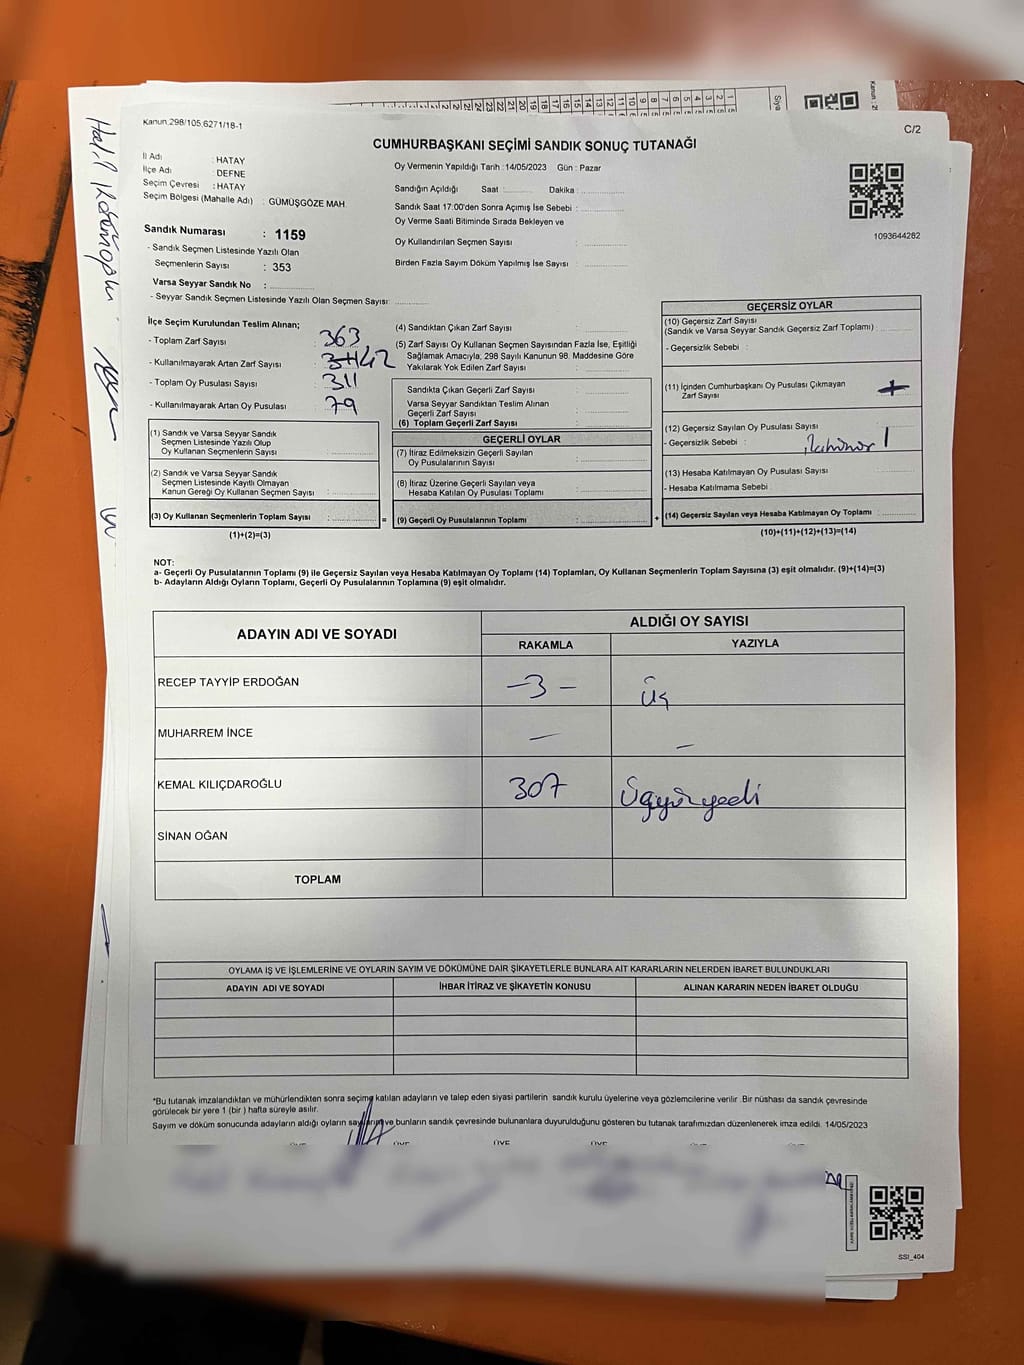 Kanun.298/105.6271/18-1
C/2
CUMHURBAŞKANI SEÇİMİ SANDIK SONUÇ TUTANAĞI
İl Adı : HATAY
İlçe Adı : DEFNE
Seçim Çevresi : HATAY
Seçim Bölgesi (Mahalle Adı) : GÜMÜŞGÖZE MAH.
Sandık Numarası : 1159
- Sandık Seçmen Listesinde Yazılı Olan
Seçmenlerin Sayısı : 353
Varsa Seyyar Sandık No :
- Seyyar Sandık Seçmen Listesinde Yazılı Olan Seçmen Sayısı:
Oy Vermenin Yapıldığı Tarih : 14/05/2023 Gün : Pazar
Sandığın Açıldığı Saat : Dakika :
Sandık Saat 17:00'den Sonra Açımış İse Sebebi :
Oy Verme Saati Bitiminde Sırada Bekleyen ve
Oy Kullandırılan Seçmen Sayısı :
Birden Fazla Sayım Döküm Yapılmış İse Sayısı :
1093644262
İlçe Seçim Kurulundan Teslim Alınan;
- Toplam Zarf Sayısı : 363
- Kullanılmayarak Artan Zarf Sayısı : 42
- Toplam Oy Pusulası Sayısı : 311
- Kullanılmayarak Artan Oy Pusulası : 79
(1) Sandık ve Varsa Seyyar Sandık
Seçmen Listesinde Yazılı Olup
Oy Kullanan Seçmenlerin Sayısı :
(2) Sandık ve Varsa Seyyar Sandık
Seçmen Listesinde Kayıtlı Olmayan
Kanun Gereği Oy Kullanan Seçmen Sayısı :
(3) Oy Kullanan Seçmenlerin Toplam Sayısı : =
(1)+(2)=(3)
(4) Sandıktan Çıkan Zarf Sayısı :
(5) Zarf Sayısı Oy Kullanan Seçmen Sayısından Fazla İse, Eşitliği
Sağlamak Amacıyla, 298 Sayılı Kanunun 98. Maddesine Göre
Yakılarak Yok Edilen Zarf Sayısı :
Sandıkta Çıkan Geçerli Zarf Sayısı :
Varsa Seyyar Sandıktan Teslim Alınan
Geçerli Zarf Sayısı :
(6) Toplam Geçerli Zarf Sayısı :
GEÇERLİ OYLAR
(7) İtiraz Edilmeksizin Geçerli Sayılan
Oy Pusulalarının Sayısı :
(8) İtiraz Üzerine Geçerli Sayılan veya
Hesaba Katılan Oy Pusulası Toplamı :
(9) Geçerli Oy Pusulalarının Toplamı : +
GEÇERSİZ OYLAR
(10) Geçersiz Zarf Sayısı
(Sandık ve Varsa Seyyar Sandık Geçersiz Zarf Toplamı) :
- Geçersizlik Sebebi :
(11) İçinden Cumhurbaşkanı Oy Pusulası Çıkmayan
Zarf Sayısı :
(12) Geçersiz Sayılan Oy Pusulası Sayısı :
- Geçersizlik Sebebi : 1
(13) Hesaba Katılmayan Oy Pusulası Sayısı
- Hesaba Katılmama Sebebi :
(14) Geçersiz Sayılan veya Hesaba Katılmayan Oy Toplamı :
(10)+(11)+(12)+(13)=(14)
NOT:
a- Geçerli Oy Pusulasının Toplamı (9) ile Geçersiz Sayılan veya Hesaba Katılmayan Oy Toplamı (14) Toplamları, Oy Kullanan Seçmenlerin Toplam Sayısına (3) eşit olmalıdır. (9)+(14)=(3)
b- Adayların Aldığı Oyların Toplamı, Geçerli Oy Pusulalarının Toplamına (9) eşit olmalıdır.
ADAYIN ADI VE SOYADI
ALDIĞI OY SAYISI
RAKAMLA YAZIYLA
RECEP TAYYİP ERDOĞAN -3- Üç
MUHARREM İNCE - -
KEMAL KILIÇDAROĞLU 307 Üçyüzyedi
SİNAN OĞAN
TOPLAM
OYLAMA İŞ VE İŞLEMLERİNE VE OYLARIN SAYIM VE DÖKÜMÜNE DAİR ŞİKAYETLERLE BUNLARA AİT KARARLARIN NELERDEN İBARET BULUNDUKLARI
ADAYIN ADI VE SOYADI İHBAR İTİRAZ VE ŞİKAYETİN KONUSU ALINAN KARARIN NEDEN İBARET OLDUĞU
*Bu tutanak imzalandıktan ve mühürlendikten sonra seçime katılan adayların ve talep eden siyasi partilerin sandık kurulu üyelerine veya gözlemcilerine verilir .Bir nüshası da sandık çevresinde
görülecek bir yere 1 (bir ) hafta süreyle asılır.
Sayım ve döküm sonucunda adayların aldığı oyların sayılarını ve bunların sandık çevresinde bulunanlara duyurulduğunu gösteren bu tutanak tarafımızdan düzenlenerek imza edildi. 14/05/2023
SSI_404